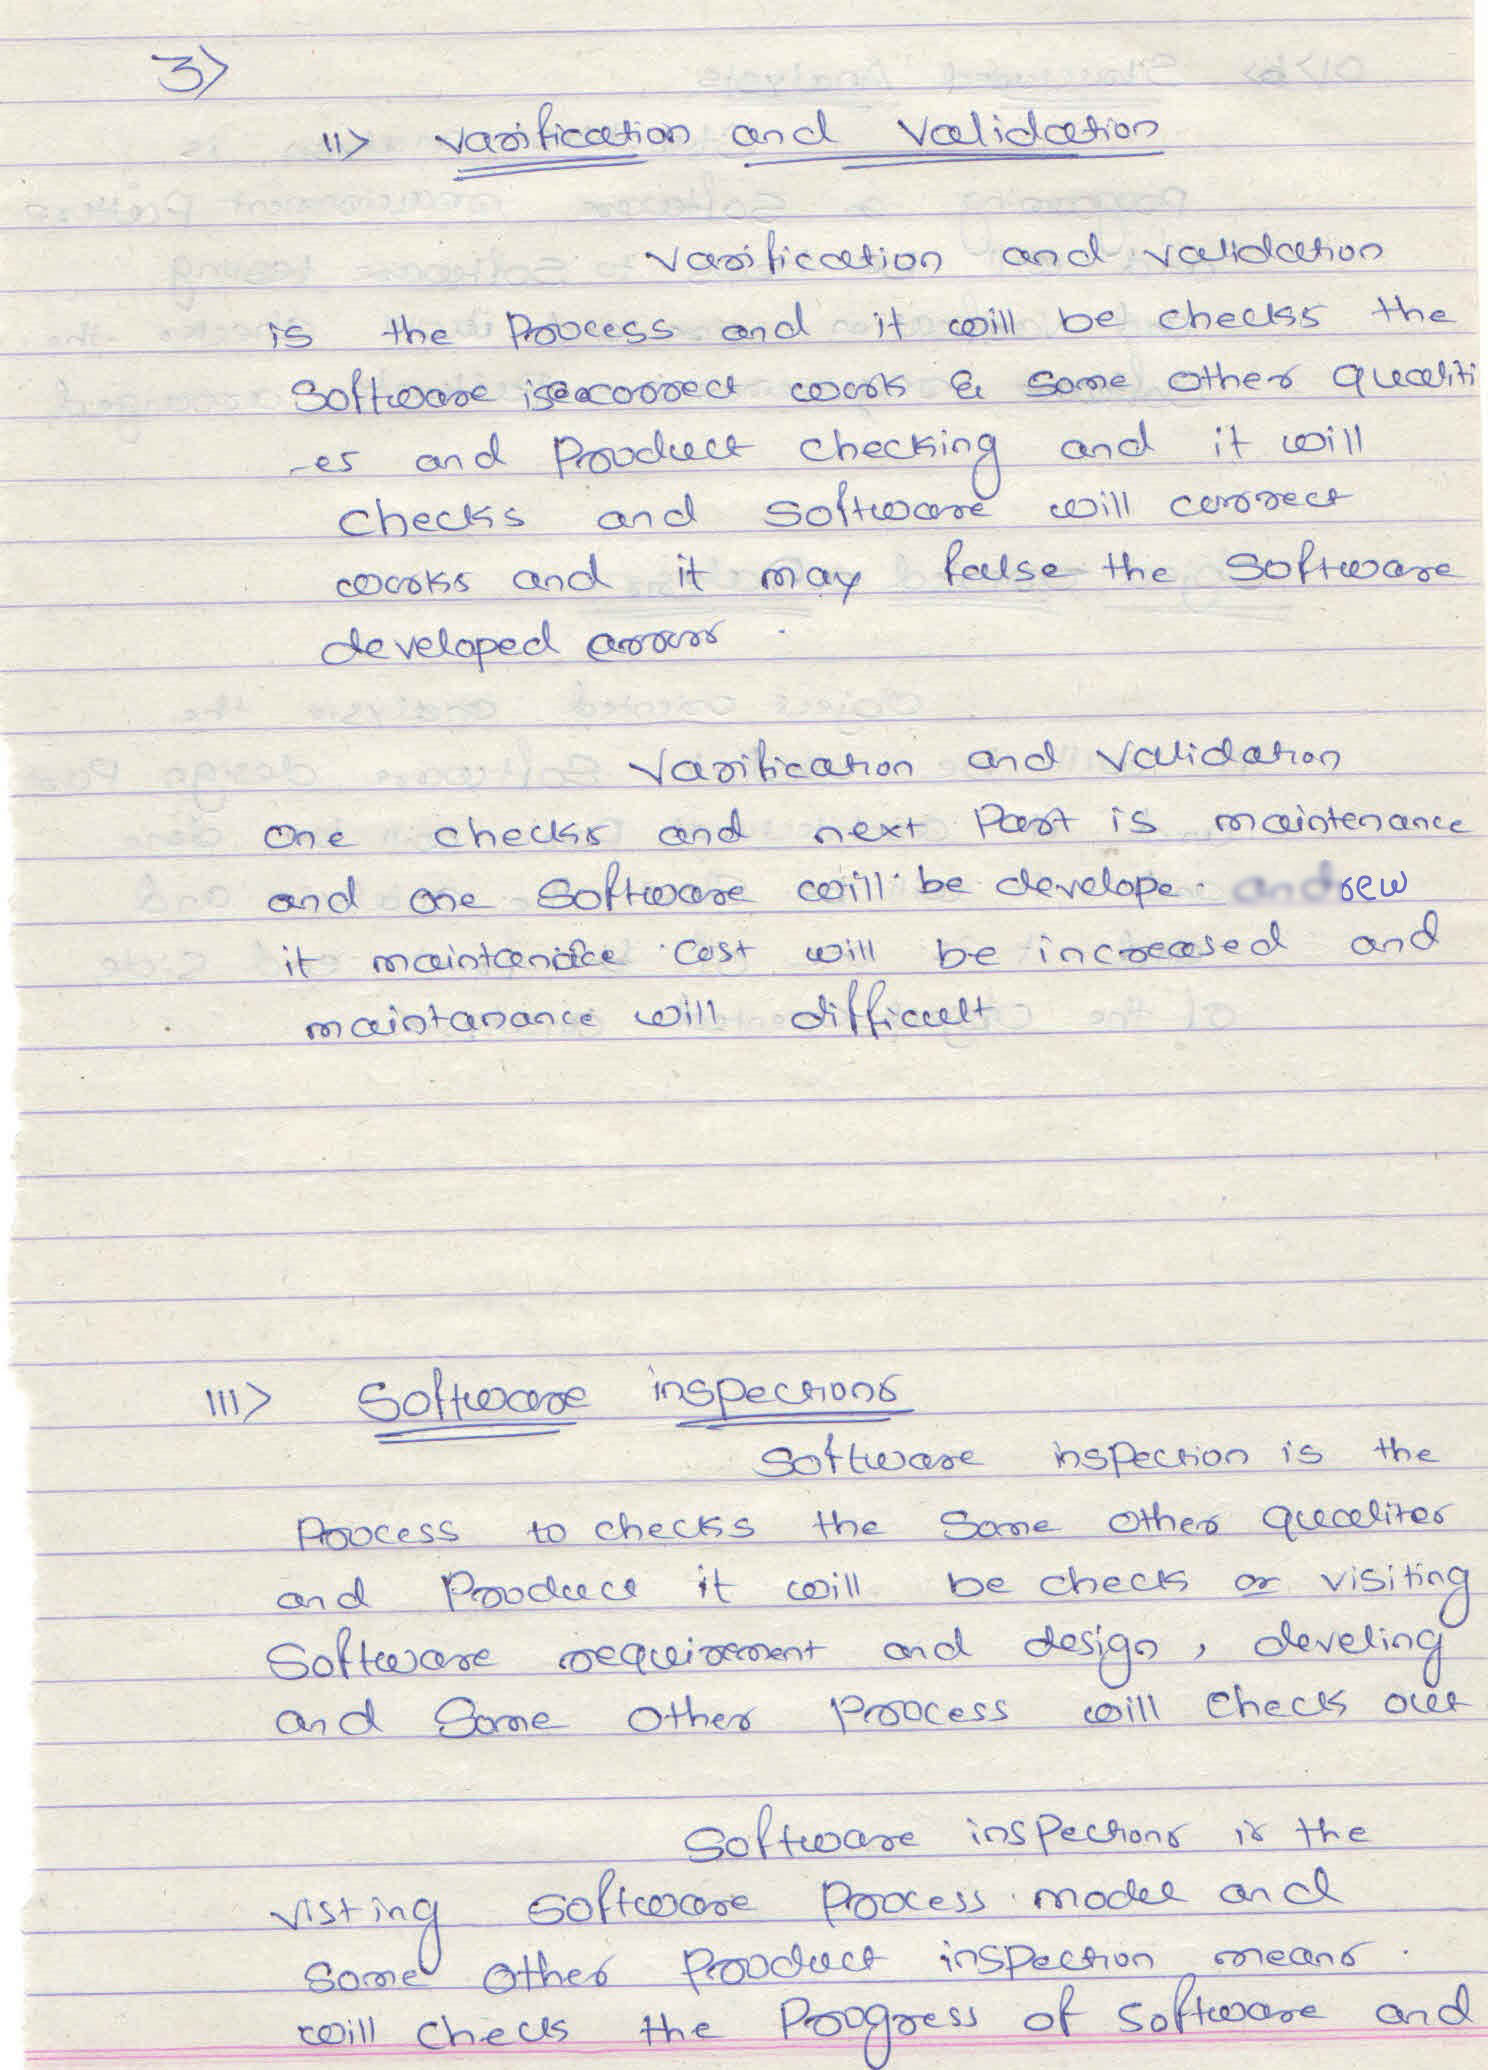 3>
11> Varification and Validation
Varification and validation
is the Process and it will be checks the
Software is correct work & some other qualiti
-es and Product checking and it will
checks and Software will correct
works and it may false the Software
developed
Varification and Validation
one checks and next Part is maintenance
and one Software will be develope. rew
it cost will be increased and
maintanance will difficult
111> Software inspections
Software inspection is the
Process to checks the Some other
and Product it will be check or visiting
Software requirement and design, develing
and Some other Process will check out
Software inspections is the
visting Software Process model and
Some other Product inspection means.
will check the Progress of Software and